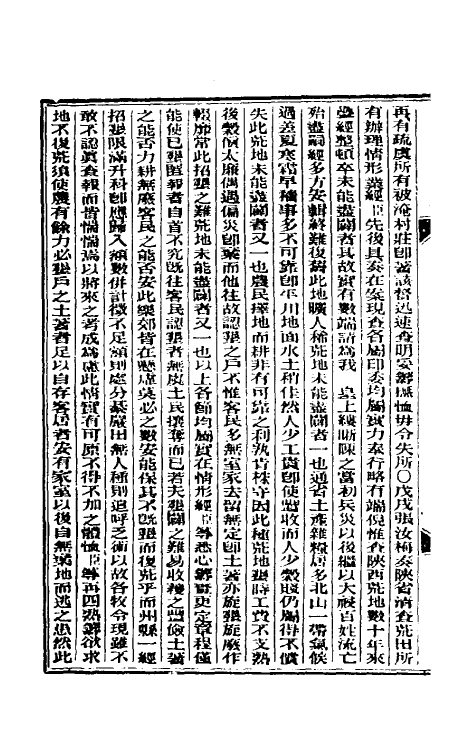 再有疏虞所有被淹村莊卽著該督迅速查明妥籌撫恤毋令失所○戊戌張汝梅奏陝省清查荒田所
有辦理情形業經臣先後具奏在案現查各屬印委均屬實力奉行略有端倪惟查陝西荒地數十年來
疊經整頓卒未能盡闢者其故實有數端請爲我　皇上縷晰陳之當初兵災以後繼以大祲百姓流亡
殆盡嗣經多方安輯終難復舊此地曠人稀荒地未能盡闢者一也通省土產雜糧居多北山一帶氣候
過差夏寒霜早種事多不可靠卽平川地面水土稍佳然人少工貴卽使豐收而人少穀賤仍屬得不償
失此荒地未能盡闢者又一也農民擇地而耕非有可靠之利孰肯株守因此種荒地墾時工費不支熟
後穀價太廉偶遇偏災卽棄而他往故認墾之戶不惟客民多無室家去留無定卽土著亦旋墾旋廢作
輟靡常此招墾之難荒地未能盡闢者又一也以上各節均屬實在情形經臣等悉心籌畫更定章程僅
能使已墾匿報者自首不究旣往客民認墾者無虞土民攘奪而已若夫墾闢之難易收穫之豐儉土著
之能否力耕無廢客民之能否安此樂郊皆在懸虛莫必之數安能保其不旣墾而復荒乎而州縣一經
招墾限滿升科卽應歸入額數併計徵不足額則處分綦嚴田無人種則追呼乏術以故各牧令現雖不
敢不認眞查報而惴惴焉以將來之考成爲慮此情實有可原不得不加之體恤臣等再四熟籌欲求
地不復荒須使農有餘力必墾戶之土著者足以自存客居者安有家室以後自無棄地而逃之患然此